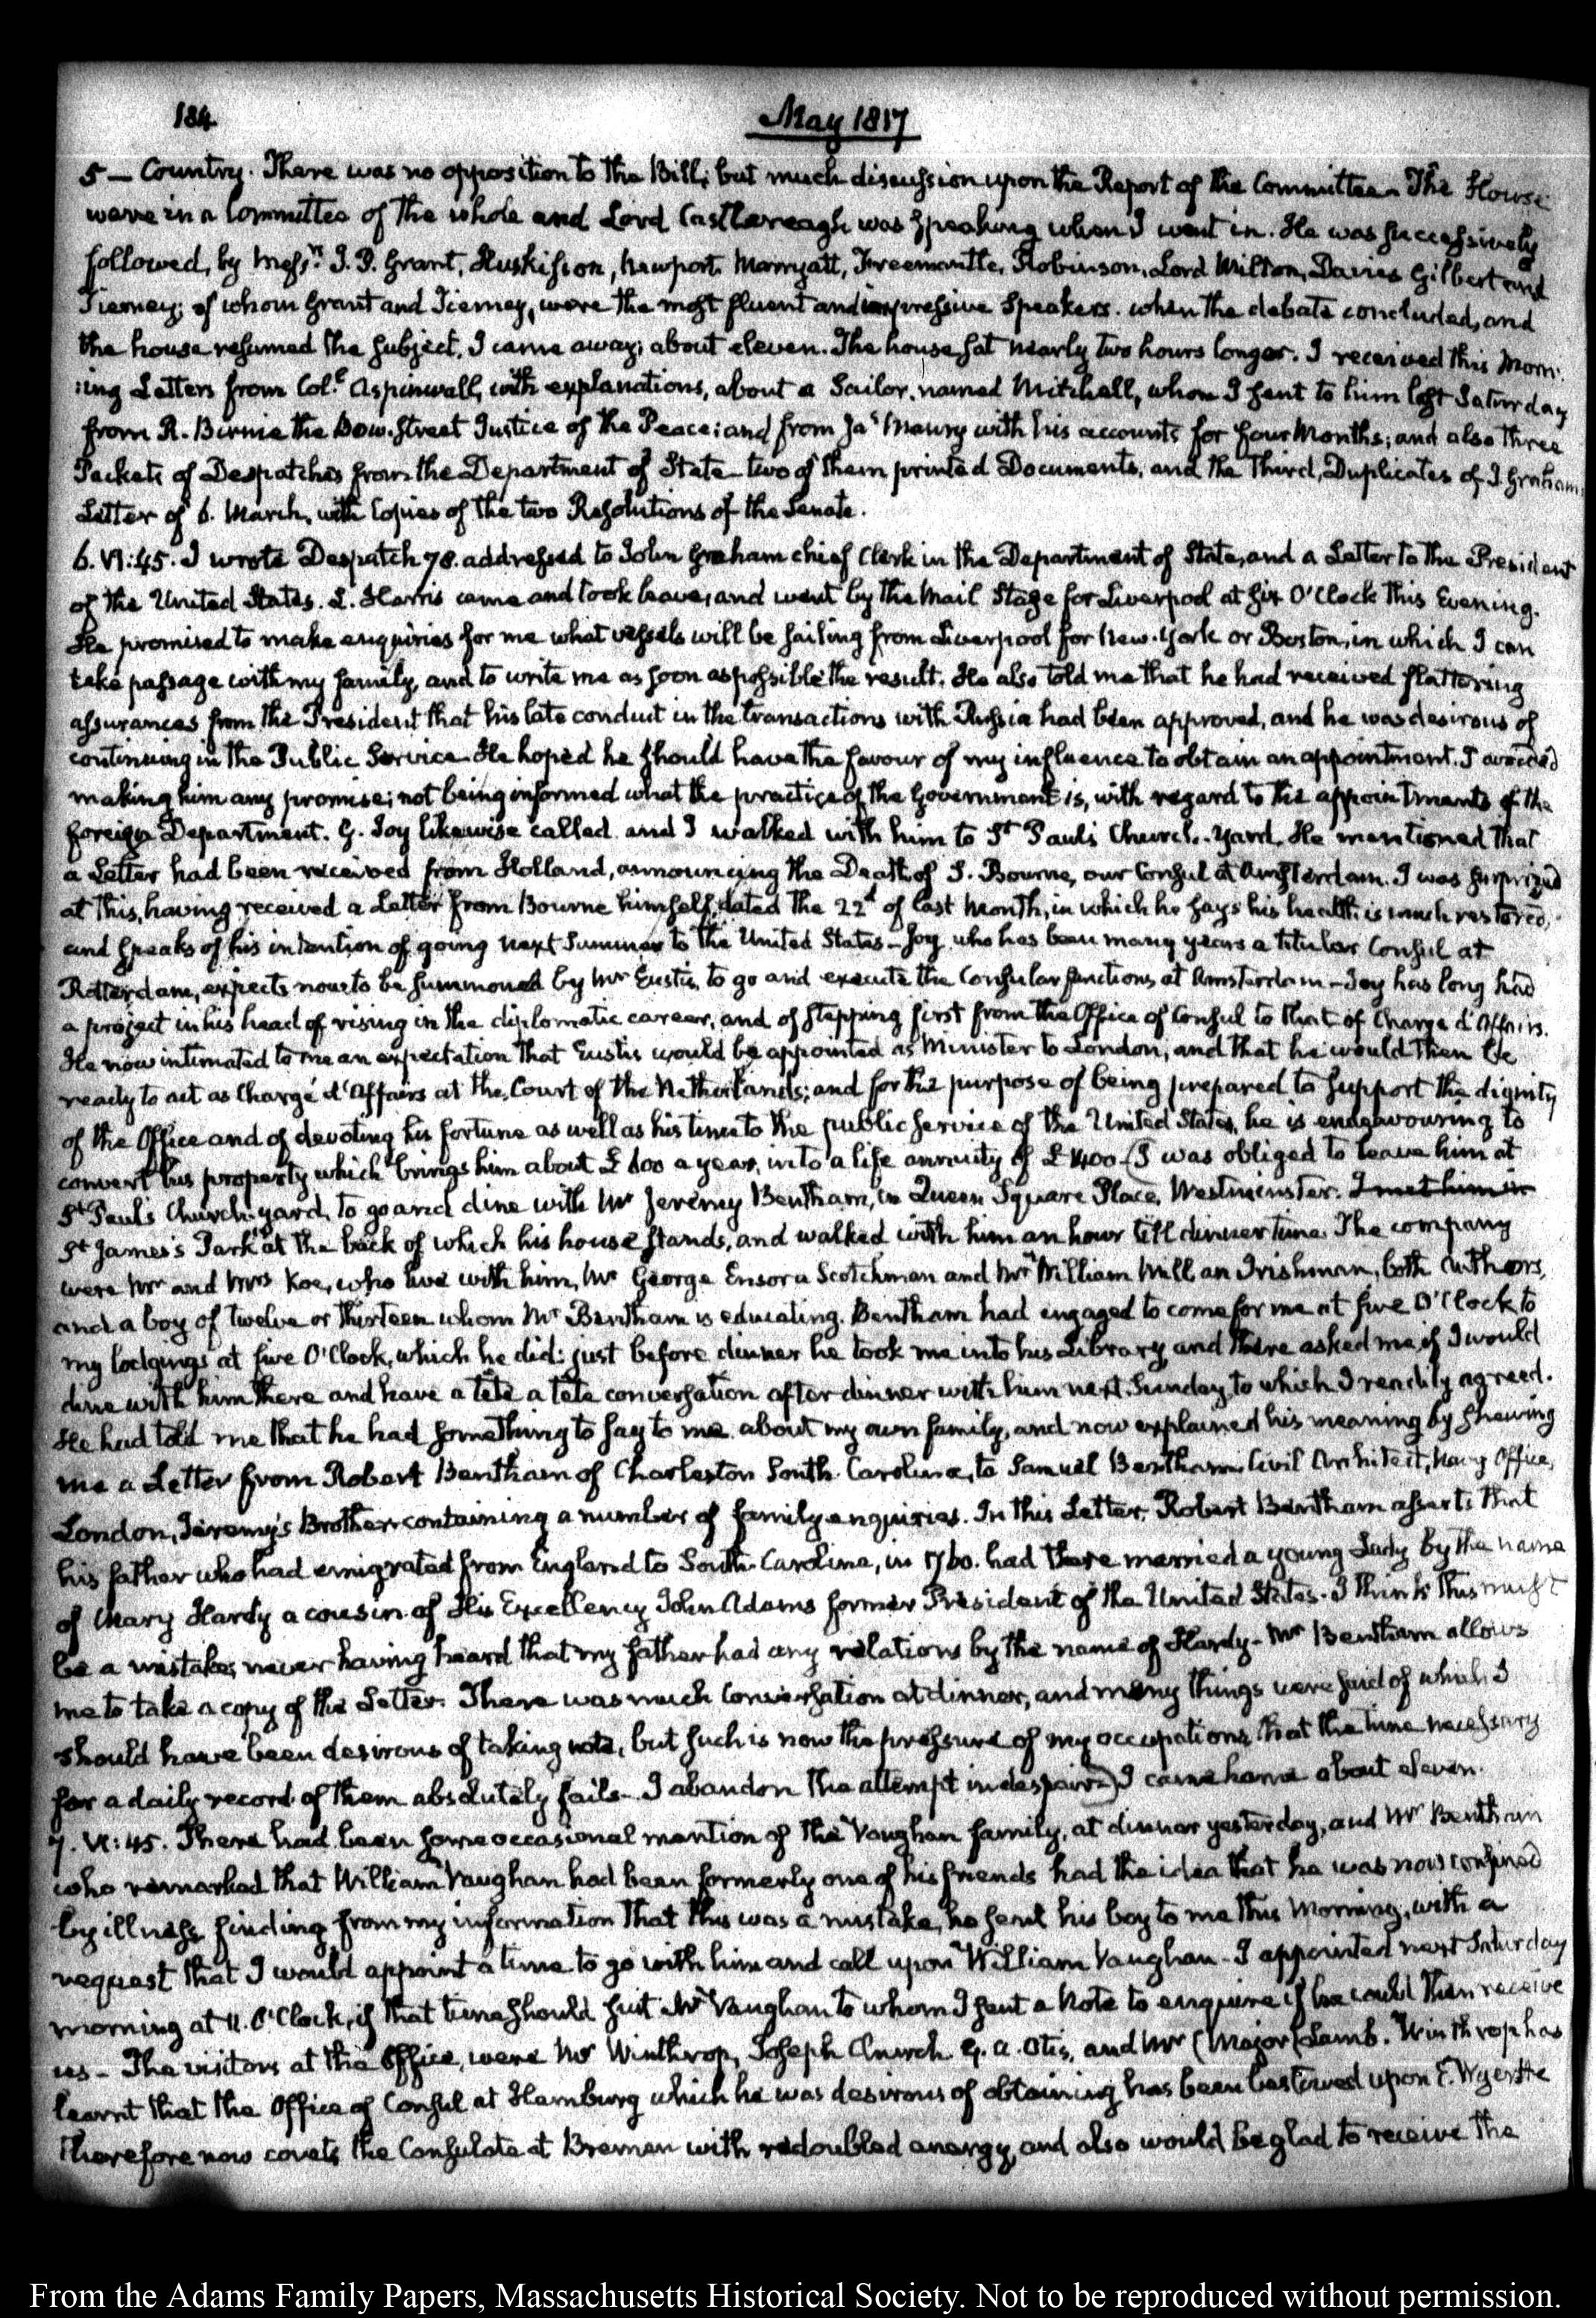 184
May 1817
5 — Country. There was no opposition to the Bill; but much discussion upon the Report of the Committee. The House
were in a Committee of the whole and Lord Castlereagh was speaking when I went in. He was successively
followed, by Messrs. J. P. Grant, Huskisson, Newport, Marryatt, Freemantle, Robinson, Lord Milton, Davies Gilbert and
Tierney; of whom Grant and Tierney, were the most fluent and impressive Speakers. when the debate concluded, and
the house resumed the subject, I came away; about eleven. The house sat nearly two hours longer. I received this Morn:
:ing Letters from Coll. Aspinwall, with explanations, about a Sailor, named Mitchell, whom I sent to him last Saturday
from R. Birnie the Bow-Street Justice of the Peace: and from Jas. Maury with his accounts for four Months; and also three
Packets of Despatches from the Department of State – two of them printed Documents, and the Third, Duplicates of J. Graham's
Letter of 6. March, with Copies of the two Resolutions of the Senate.
6. VI:45. I wrote Despatch 78. addressed to John Graham chief Clerk in the Department of State, and a Letter to the President
of the United States. L. Harris came and took leave, and went by the Mail Stage for Liverpool at six O'Clock this Evening.
He promised to make enquiries for me what vessels will be sailing from Liverpool for New-York or Boston, in which I can
take passage with my family, and to write me as soon as possible the result. He also told me that he had received flattering
assurances from the President that his late conduct in the transactions with Russia had been approved, and he was desirous of
continuing in the Public Service. He hoped he should have the favour of my influence to obtain an appointment. I avoided
making him any promise; not being informed what the practice of the Government is, with regard to the appointments of the
foreign Department. G. Joy likewise called and I walked with him to St. Paul's Church-Yard. He mentioned that
a Letter had been received from Holland, announcing the Death of S. Bourne, our Consul at Amsterdam. I was surprized
at this, having received a Letter from Bourne himself, dated the 22d. of last Month, in which he says his health is much restored,
and speaks of his intention of going next Summer to the United States – Joy who has been many years a titular Consul at
Rotterdam, expects now to be summoned by Mr Eustis, to go and execute the Consular functions at Amsterdam – Joy has long had
a project in his head of rising in the diplomatic career, and of stepping first from the Office of Consul to that of Chargé d'Affairs.
He now intimated to me an expectation that Eustis would be appointed as Minister to London, and that he would then be
ready to act as Chargé d'Affairs at the Court of the Netherlands; and for the purpose of being prepared to support the dignity
of the Office and of devoting his fortune as well as his time to the public service of the United States, he is endeavouring to
convert his property which brings him about £ 600 a year, into a life annuity of £ 1400 – I was obliged to leave him at
St. Paul's Church-yard, to go and dine with Mr Jeremy Bentham, in Queen Square Place, Westminster. I met him in
St James's Park at the back of which his house stands, and walked with him an hour till dinner time. The company
were Mr and Mrs Koe, who live with him, Mr George Ensor a Scotchman and Mr William Mill, an Irishman, both Authors,
and a boy of twelve or thirteen whom Mr Bentham is educating. Bentham had engaged to come for me at five O'Clock to
my lodgings at five O'Clock, which he did: just before dinner he took me into his Library, and there asked me, if I would
dine with him there and have a tête a tete conversation after dinner with him next Sunday, to which I readily agreed.
He had told me that he had something to say to me about my own family, and now explained his meaning by shewing
me a Letter from Robert Bentham of Charleston South-Carolina, to Samuel Bentham, Civil Architect, Navy Office,
London, Jeremy's Brother, containing a number of family enquiries. In this Letter, Robert Bentham asserts that
his father who had emigrated from England to South-Carolina, in 1760. had there married a young Lady by the name
of Mary Hardy a cousin of His Excellency John Adams former President of the United States. I think this must
be a mistake; never having heard that my father had any relations by the name of Hardy – Mr Bentham allows
me to take a copy of the Letter. There was much Conversation at dinner, and many things were said of which I
should have been desirous of taking note, but such is now the pressure of my occupations, that the time necessary
for a daily record of them absolutely fails – I abandon the attempt in despair – I came home about eleven.
7. VI:45. There had been some occasional mention of the Vaughan family, at dinner yesterday, and Mr Bentham
who remarked that William Vaughan had been formerly one of his friends had the idea that he was now confined
by illness, finding from my information that this was a mistake, he sent his boy to me this Morning, with a
request that I would appoint a time to go with him and call upon William Vaughan – I appointed next Saturday
morning at 11. O'Clock, if that time should suit Mr Vaughan to whom I sent a Note to enquire if he could then receive
us – The visitors at the Office, were Mr Winthrop, Joseph Church, G. A. Otis, and Mr (Major) Lamb. Winthrop has
learnt that the Office of Consul at Hamburg which he was desirous of obtaining has been bestowed upon E. Wyer. He
therefore now covets the Consulate at Bremen with redoubled energy, and also would be glad to receive the
From the Adams Family Papers, Massachusetts Historical Society. Not to be reproduced without permission.